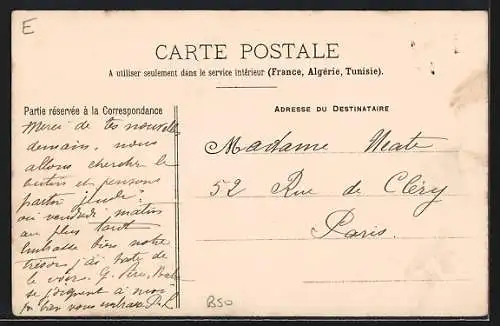 E
CARTE POSTALE
A utiliser seulement dans le service intérieur (France, Algérie, Tunisie).
Partie réservée à la Correspondance
ADRESSE DU DESTINATAIRE
Merci de tes nouvelles
demain, nous
allons chercher le
et pensons
partir jeudi
ou vendredi matin
au plus tard
Embrasse bien notre
trésor j'ai hâte de
le voir. G.
se joignent à moi
bien vous embrasser
Madame
52 Rue de Cléry
Paris.
B50